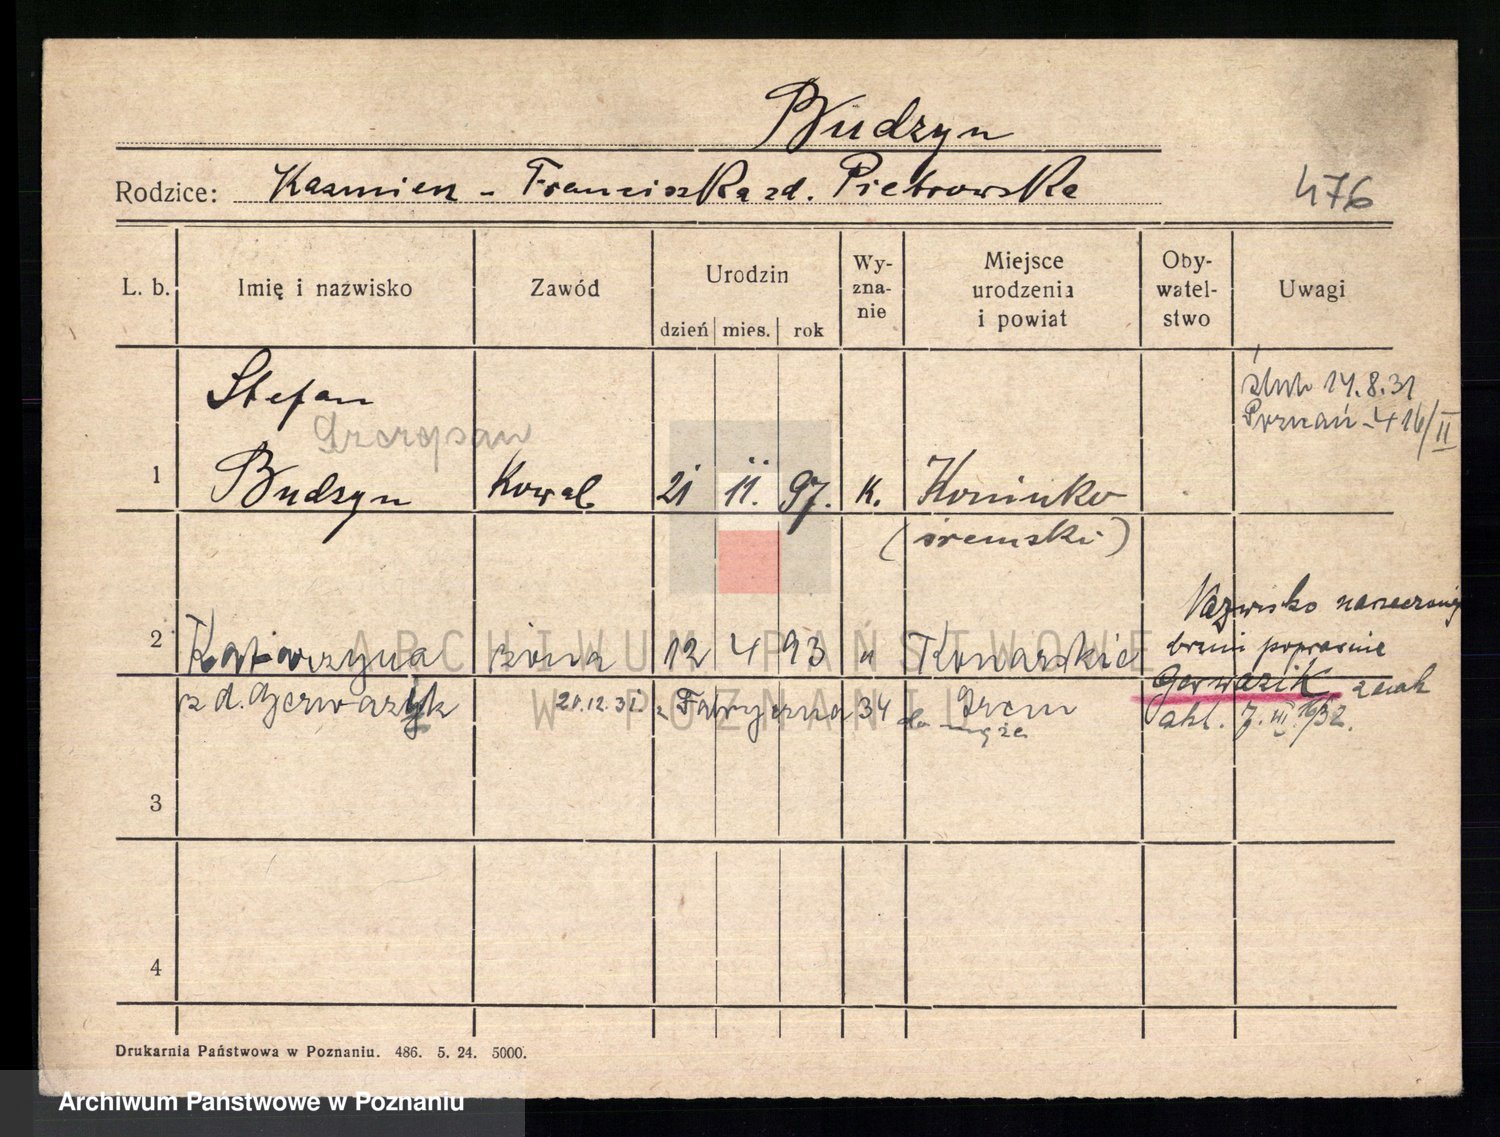 Budzyn
Rodzice: Kazmierz - Franciszka zd. Pietrowska
476
L. b. Imię i nazwisko Zawód Urodzin Wy-zna-nie Miejsce urodzenia i powiat Oby-watel-stwo Uwagi
dzień mies. rok
Stefan
Szczepan
ślub 14.8.31
Poznań - 416/II
1 Budzyn Kowal 21 11. 97. K. Koninko
(śremski)
Nazwisko
brzmi poprawnie
2 Katarzyna żona 12 4 93 " Konarskie
Gerwazik
z d. Gerwazyk 21.12.31. z Fabryczna 34 do męża Śrem
akt. 7.III.1932.
3
4
Drukarnia Państwowa w Poznaniu. 486. 5. 24. 5000.
ARCHIWUM PAŃSTWOWE
W POZNANIU
Archiwum Państwowe w Poznaniu